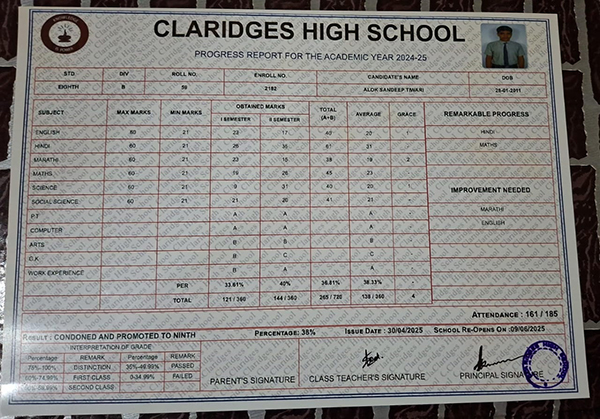 CLARIDGES HIGH SCHOOL
PROGRESS REPORT FOR THE ACADEMIC YEAR 2024-25
STD DIV ROLL NO. ENROLL NO. CANDIDATE'S NAME DOB
EIGHTH B 2182 SANDEEP TIWARI 25-01-2011
SUBJECT MAX MARKS MIN MARKS OBTAINED MARKS TOTAL (A+B) AVERAGE GRACE REMARKABLE PROGRESS
I SEMESTER II SEMESTER
ENGLISH 60 21 23 17 40 20 1 HINDI
HINDI 60 21 26 35 61 31 - MATHS
MARATHI 60 21 23 15 38 19 2
MATHS 60 21 19 26 45 23 -
SCIENCE 60 21 9 31 40 20 1 IMPROVEMENT NEEDED
SOCIAL SCIENCE 60 21 21 20 41 21 -
P.T A A A - MARATHI
COMPUTER A A A - ENGLISH
ARTS B B B -
G.K B C C -
WORK EXPERIENCE B A A -
PER 33.61% 40% 36.81% 38.33% -
TOTAL 121 / 360 144 / 360 265 / 720 138 / 360 4
ATTENDANCE : 161 / 185
RESULT : CONDONED AND PROMOTED TO NINTH PERCENTAGE: 38% ISSUE DATE : 30/04/2025 SCHOOL RE-OPENS ON :09/06/2025
INTERPRETATION OF GRADE
Percentage REMARK Percentage REMARK
75%-100% DISTINCTION 35%-49.99% PASSED
60%-74.99% FIRST CLASS 0-34.99% FAILED
50%-59.99% SECOND CLASS
PARENT'S SIGNATURE CLASS TEACHER'S SIGNATURE PRINCIPAL SIGNATURE